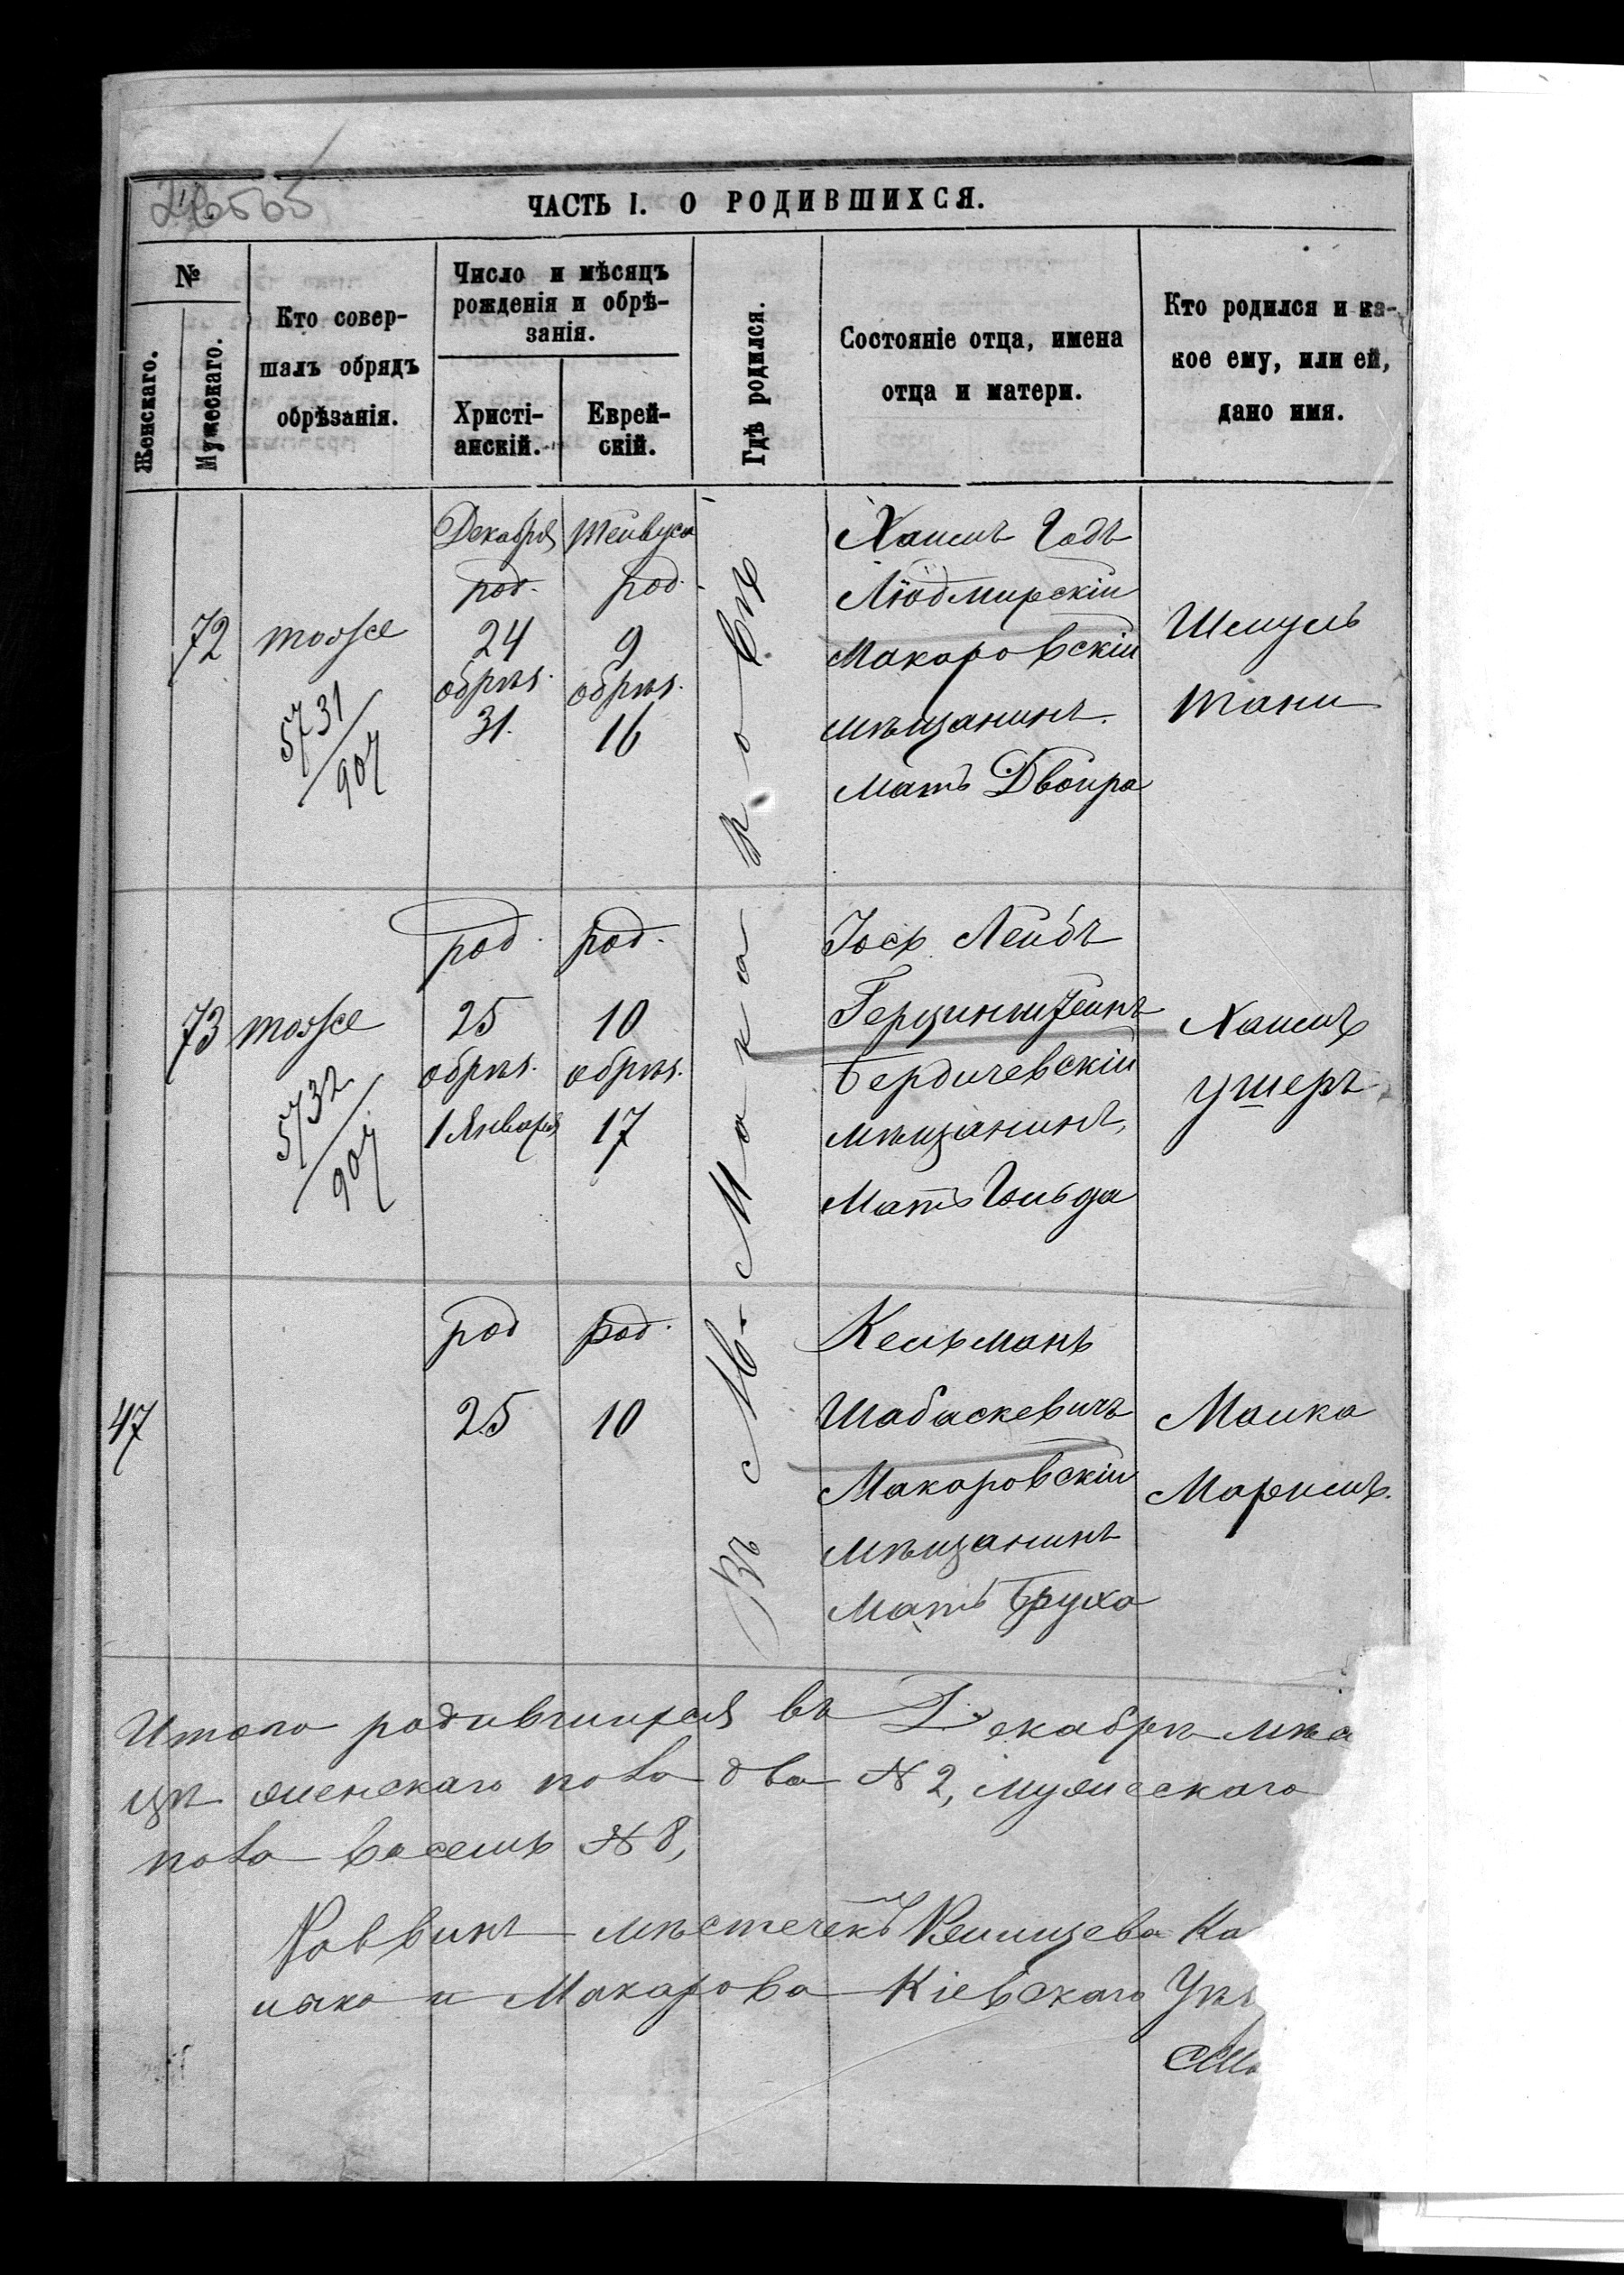 ЧАСТЬ I. О РОДИВШИХСЯ.
№
Женскаго.
Мужескаго.
Кто совер-
шалъ обрядъ
обрѣзанія.
Число и мѣсяцъ
рожденія и обрѣ-
занія.
Христі-
анскій.
Еврей-
скій.
Гдѣ родился.
Состояніе отца, имена
отца и матери.
Кто родился и ка-
кое ему, или ей,
дано имя.
72
тоже
5731/907
Декабря
род.
24
обрѣз.
31.
Тейвуса
род.
9
обрѣз.
16
Въ М. Макаровѣ
Хаимъ Годъ
Людмирскій
Макаровскій
мѣщанинъ.
Мать Двойра
Шмуль
Тани
73
тоже
5732/907
род.
25
обрѣз.
1 Января
род.
10
обрѣз.
17
Іосъ Лейбъ
Бердичевскій
мѣщанинъ,
Мать Гольда
Хаимъ
Ушеръ
47
род
25
род.
10
Кельманъ
Шабаскевичъ
Макаровскій
мѣщанинъ
Мать Бруха
Малка
Маримъ.
Итого родившихся въ Декабрѣ мѣся
цѣ женскаго пола два № 2, мужескаго
пола восемь № 8,
Раввинъ мѣстечекъ
и Макарова Кіевскаго Уѣз